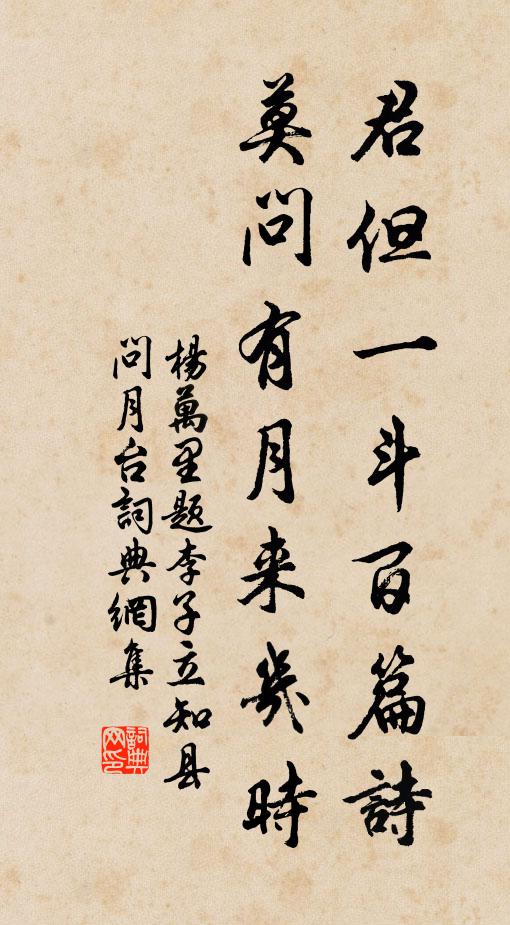 君但一斗百篇詩
莫問有月来幾時
楊萬里题李子立知县
問月台詞典網集
詞典网印